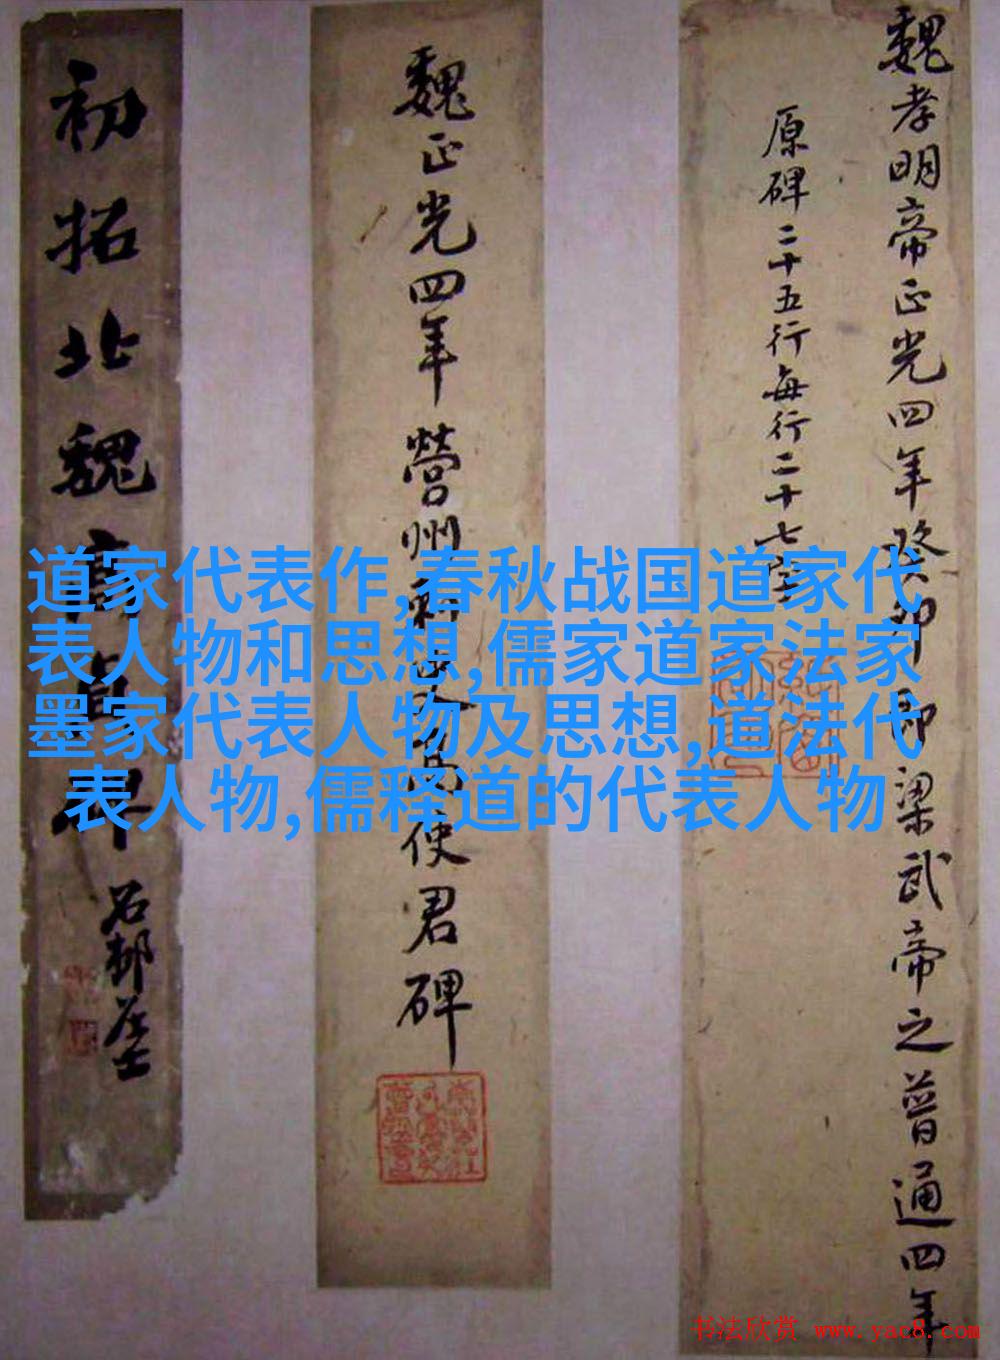 魏孝明帝正光四年癸卯即梁武帝之普通四年
原碑二十五行每行二十七字
魏正光四年营州刺史高使君碑
初拓北魏高貞碑
石邨居士
道家代表作,春秋战国道家代
表人物和思想,儒家道家法家
墨家代表人物及思想,道法代
表人物,儒释道的代表人物
书法欣赏 www.yac8.com